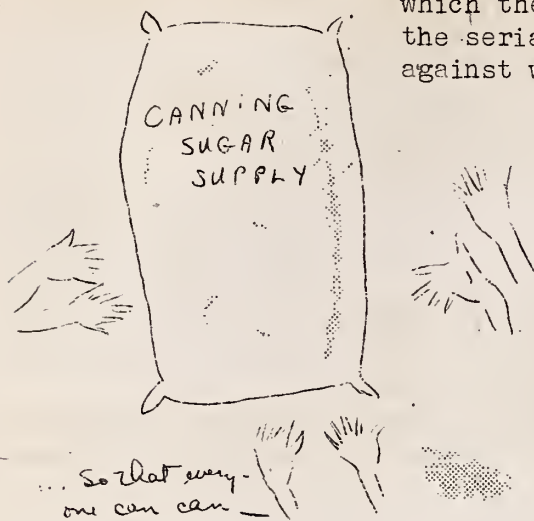 which the
the seria
against w
CANNING
SUGAR
SUPPLY
... So that every-
one can can —